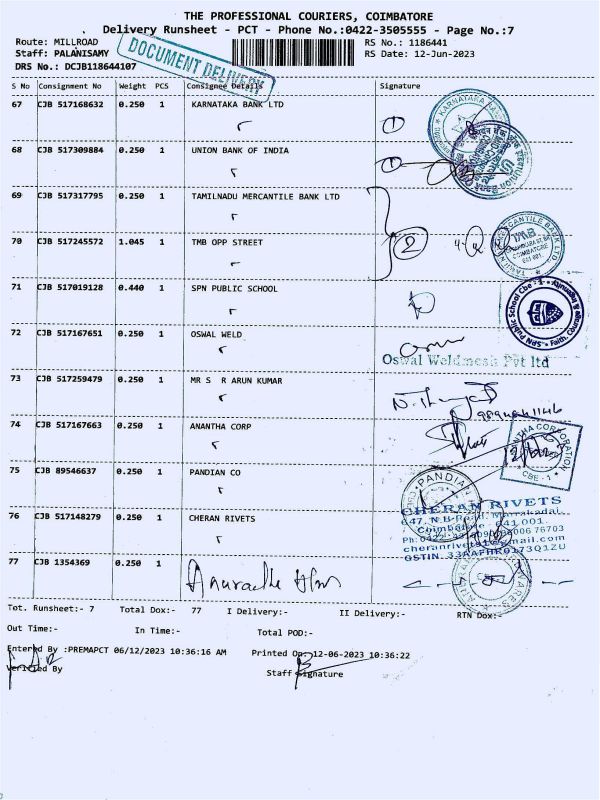 THE PROFESSIONAL COURIERS, COIMBATORE
Delivery Runsheet - PCT - Phone No.:0422-3505555 - Page No.:7
Route: MILLROAD RS No.: 1186441
Staff: PALANISAMY RS Date: 12-Jun-2023
DRS No.: DCJB118644107
DOCUMENT DELIVERY
S No Consignment No Weight PCS Consignee Details Signature
67 CJB 517168632 0.250 1 KARNATAKA BANK LTD
1
68 CJB 517309884 0.250 1 UNION BANK OF INDIA
1
69 CJB 517317795 0.250 1 TAMILNADU MERCANTILE BANK LTD
70 CJB 517245572 1.045 1 TMB OPP STREET
2
71 CJB 517019128 0.440 1 SPN PUBLIC SCHOOL
SPN Public School Cbe - 1
72 CJB 517167651 0.250 1 OSWAL WELD
Oswal Weldmesh Pvt ltd
73 CJB 517259479 0.250 1 MR S R ARUN KUMAR
74 CJB 517167663 0.250 1 ANANTHA CORP
ANANTHA CORPORATION
CBE - 1
75 CJB 89546637 0.250 1 PANDIAN CO
PANDIAN
76 CJB 517148279 0.250 1 CHERAN RIVETS
CHERAN RIVETS
Coimbatore - 641 001.
77 CJB 1354369 0.250 1
Tot. Runsheet:- 7 Total Dox:- 77 I Delivery:- II Delivery:- RTN Dox:-
Out Time:- In Time:- Total POD:-
Entered By :PREMAPCT 06/12/2023 10:36:16 AM Printed On: 12-06-2023 10:36:22
Verified By Staff Signature